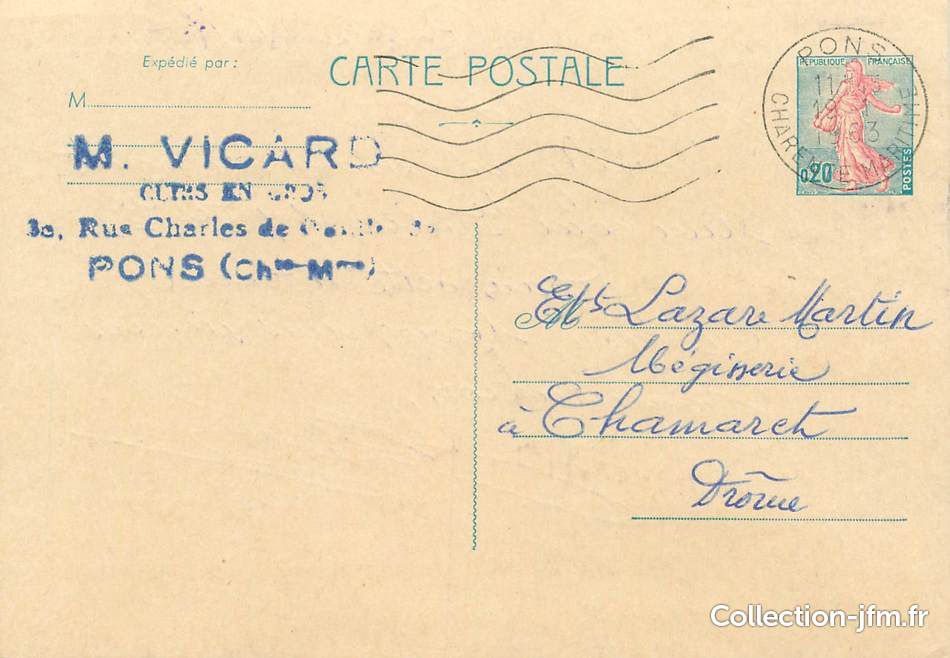 Expédié par :
CARTE POSTALE
M
M. VICARD
CUIRS EN GROS
Rue Charles de Gaulle
PONS (Chte-Mme)
PONS
CHARENTE MARITIME
1963
RÉPUBLIQUE FRANÇAISE
0,20
POSTES
Ets Lazare Martin
Mégisserie
à Chamaret
Drôme
Collection-jfm.fr